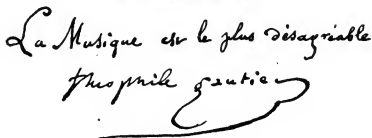 La Musique est le plus désagréable
théophile gautier